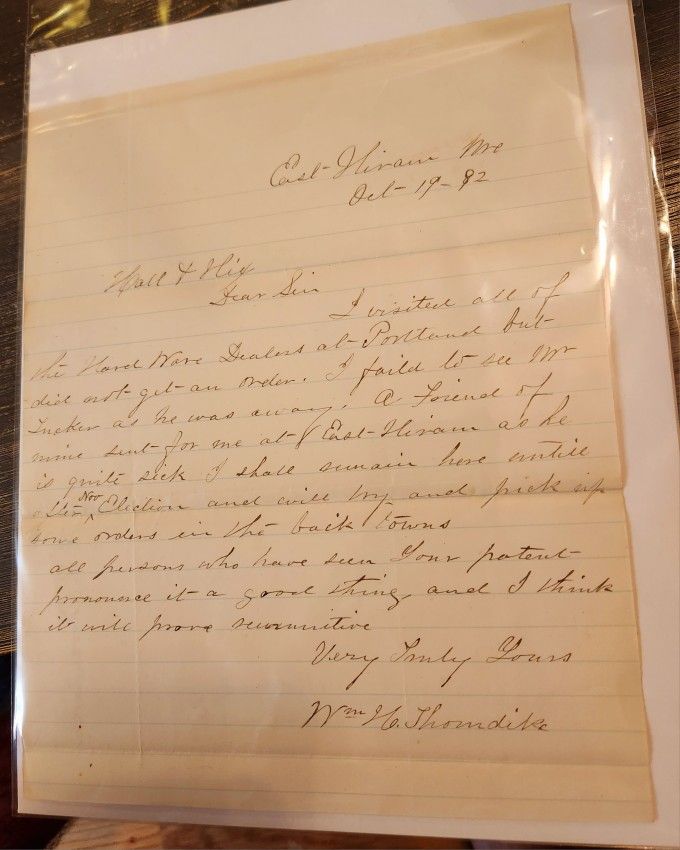 East Hiram Me
Oct 19 - 82
Hall & Hix
Dear Sir
I visited all of
the Hard Ware Dealers at Portland but
did not get an order. I faild to see Mr
Tucker as he was away. A Friend of
mine sent for me at East Hiram as he
is quite sick I shall remain here untill
after Nov Election and will try and pick up
some orders in the back towns
all persons who have seen Your patent
pronounce it a good thing and I think
it will prove
Very Truly Yours
Wm H. Thorndike